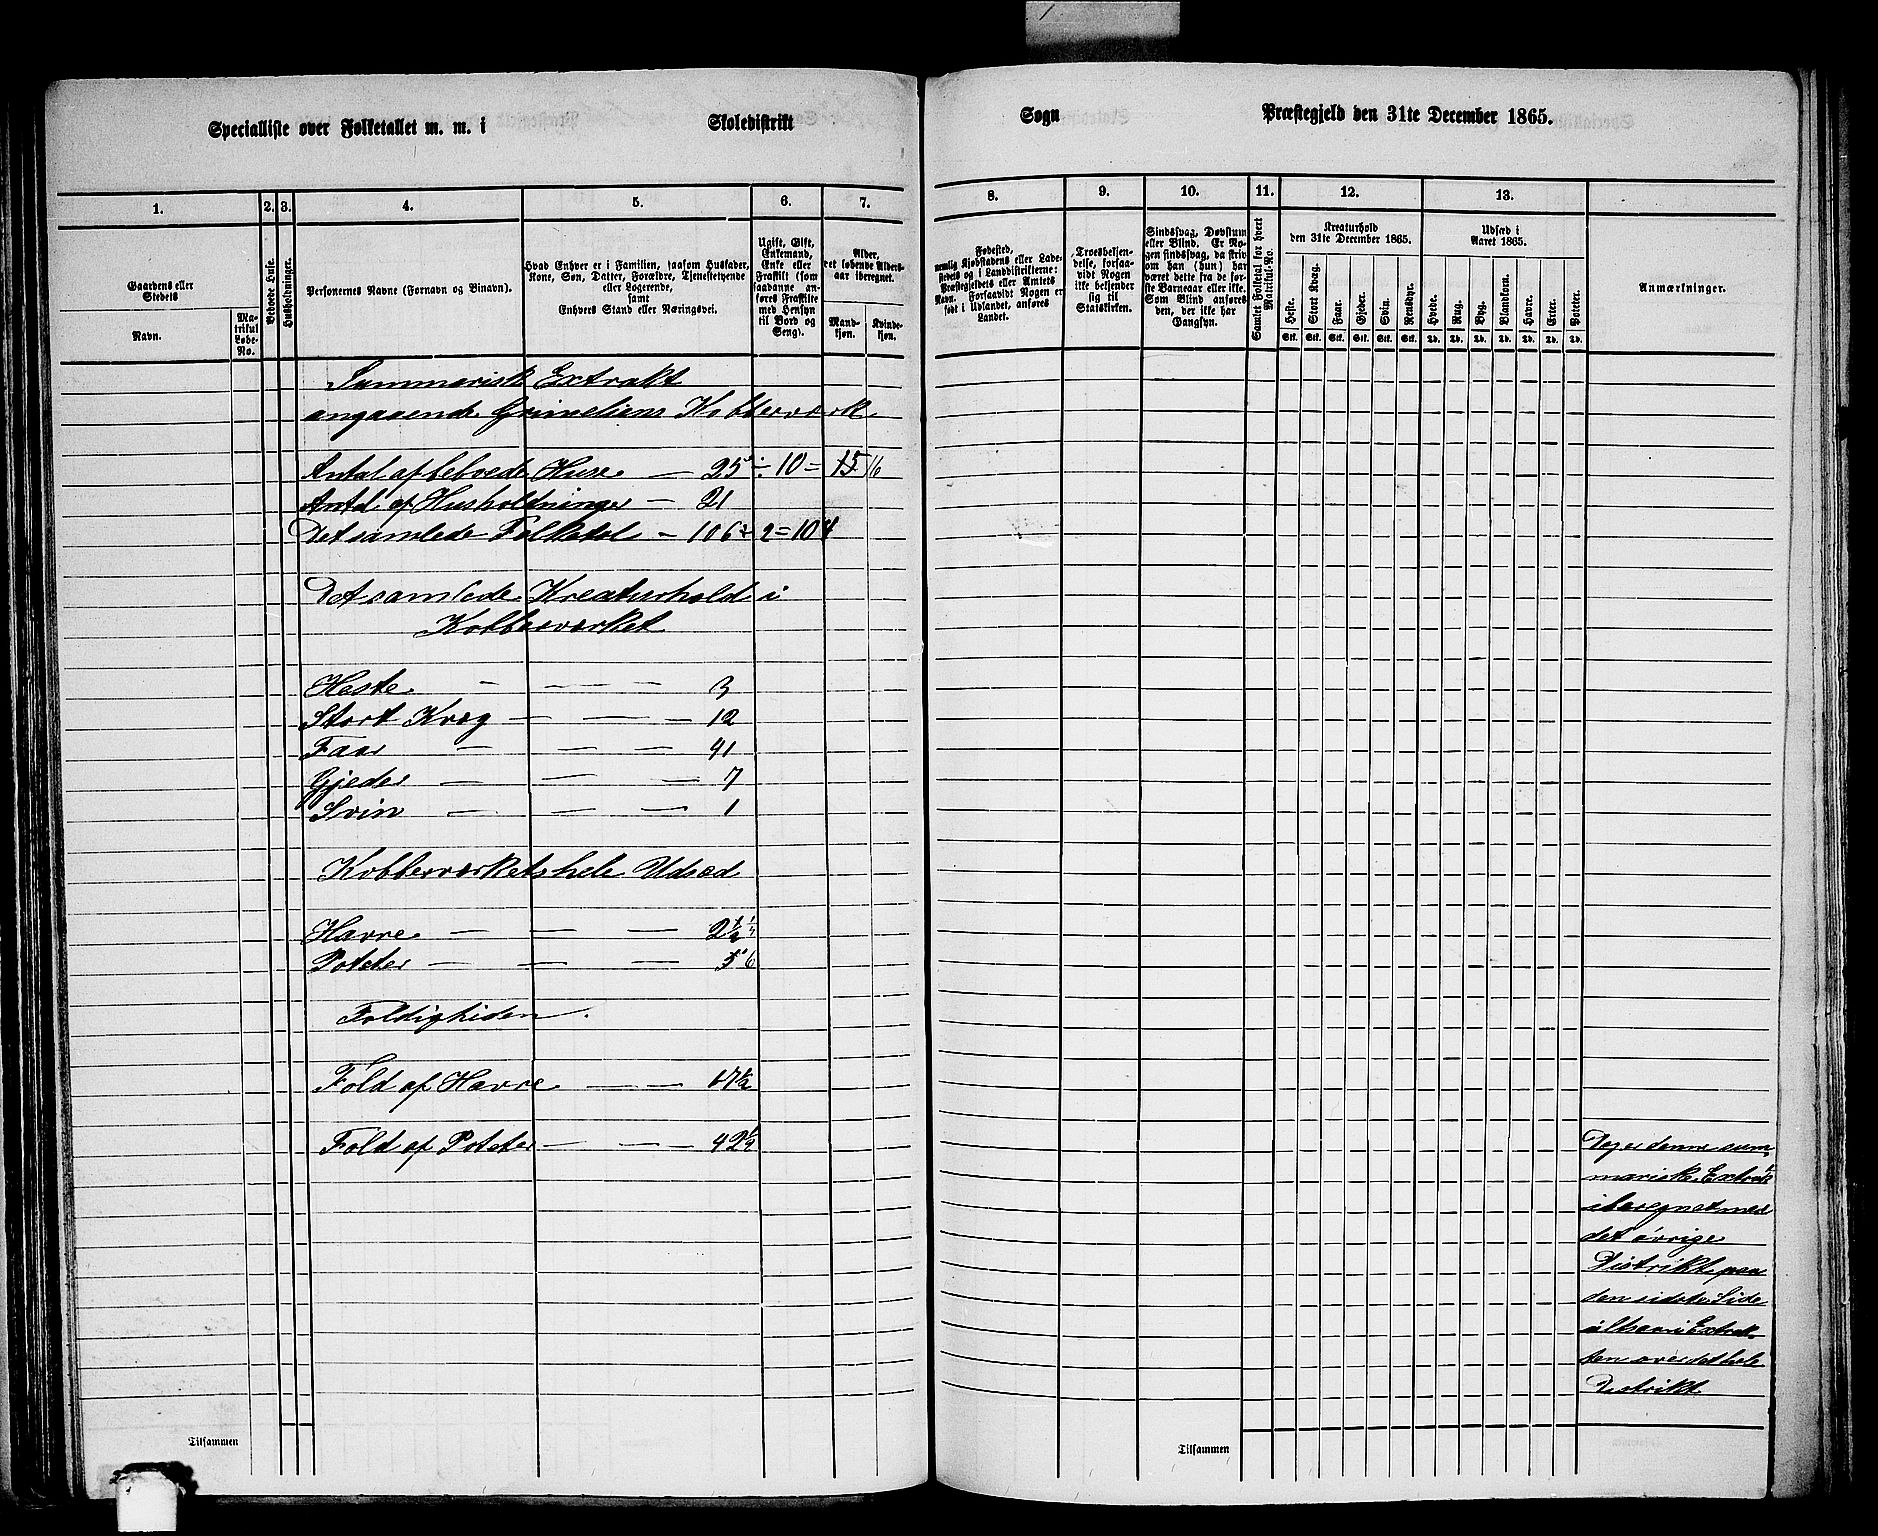 Specialliste over Folketallet m. m. i Skoledistrikt Sogn Præstegjeld den 31te December 1865.
1. 2. 3. 4. 5. 6. 7. 8. 9. 10. 11. 12. 13.
Gaardens eller
Stedets
Navn.
Ma-
trikul
Løbe-
No.
Beboede Huse.
Husholdninger.
Personernes Navne (Fornavn og Binavn).
Hvad Enhver er i Familien, saasom Husfader,
Kone, Søn, Datter, Forældre, Tjenestetyende
eller Logerende,
samt
Enhvers Stand eller Næringsvei.
Ugift, Gift,
Enkemand,
Enke eller
Fraskilt (som
saadanne an-
føres Fraskilte
med Hensyn
til Bord og
Seng).
Alder,
det løbende Alders-
aar iberegnet.
Mand-
kjøn.
Kvinde-
kjøn.
Fødested,
nemlig Kjøbstadens eller Lade-
stedets og i Landdistrikterne:
Præstegjeldets eller Amtets
Navn. Forsaavidt Nogen er
født i Udlandet, anføres
Landet.
Troesbekjen-
delse, forsaa-
vidt Nogen
ikke bekjender
sig til
Statskirken.
Sindssvag, Døvstum
eller Blind. Er No-
gen sindssvag, da skriv
om han (hun) har
været dette fra de før-
ste Barneaar eller ikke.
Som Blind anføres
den, der ikke har
Gangsyn.
Samlet Folketal for hvert
Matrikul-No.
Kreaturhold
den 31te December 1865.
Heste.
Stort Kvæg.
Faar.
Gjeder.
Svin.
Rensdyr.
Stk. Stk. Stk. Stk. Stk. Stk.
Udsæd i
Aaret 1865.
Hvede.
Rug.
Byg.
Blandkorn.
Havre.
Erter.
Poteter.
Td. Td. Td. Td. Td. Td. Td.
Anmærkninger.
Summarisk Extrakt
angaaende Grimeliens Kobberværk
Antal af beboede Huse — 25 ÷ 10 = 15 16
Antal af Husholdninger — 21
Det samlede Folketal — 106 ÷ 2 = 104
Det samlede Kreaturhold i
Kobberværket
Heste — — — 3
Stort Kvæg — — — 12
Faar — — — 41
Gjeder — — — 7
Svin — — — 1
Kobberværkets hele Udsæd
Havre — — — 2½ ¼
Poteter — — — 5 6
Foldigheden.
Fold af Havre — — 17½
Fold af Poteter — — — 42½
denne sum-
marisk Extrakt
iberegnet med
det øvrige
Distrikt paa
den sidste Side
altsaa i Extrak-
ten over det hele
Distrikt
Tilsammen
Tilsammen